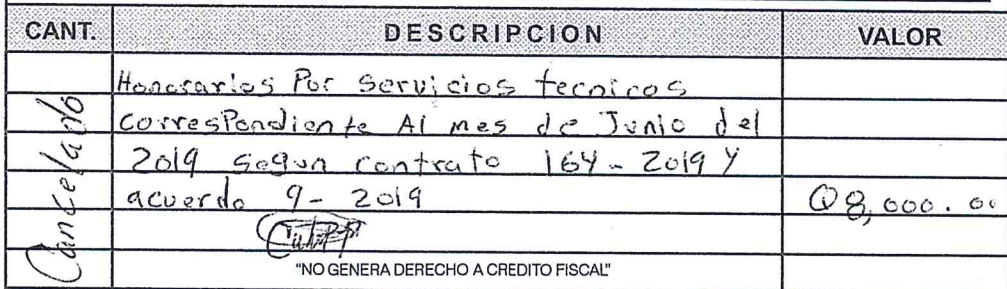 CANT. DESCRIPCION VALOR
Honorarios Por Servicios tecnicos
correspondiente Al mes de Junio del
2019 segun contrato 164-2019 y
acuerdo 9-2019 Q8,000.00
Cancelado
"NO GENERA DERECHO A CREDITO FISCAL"